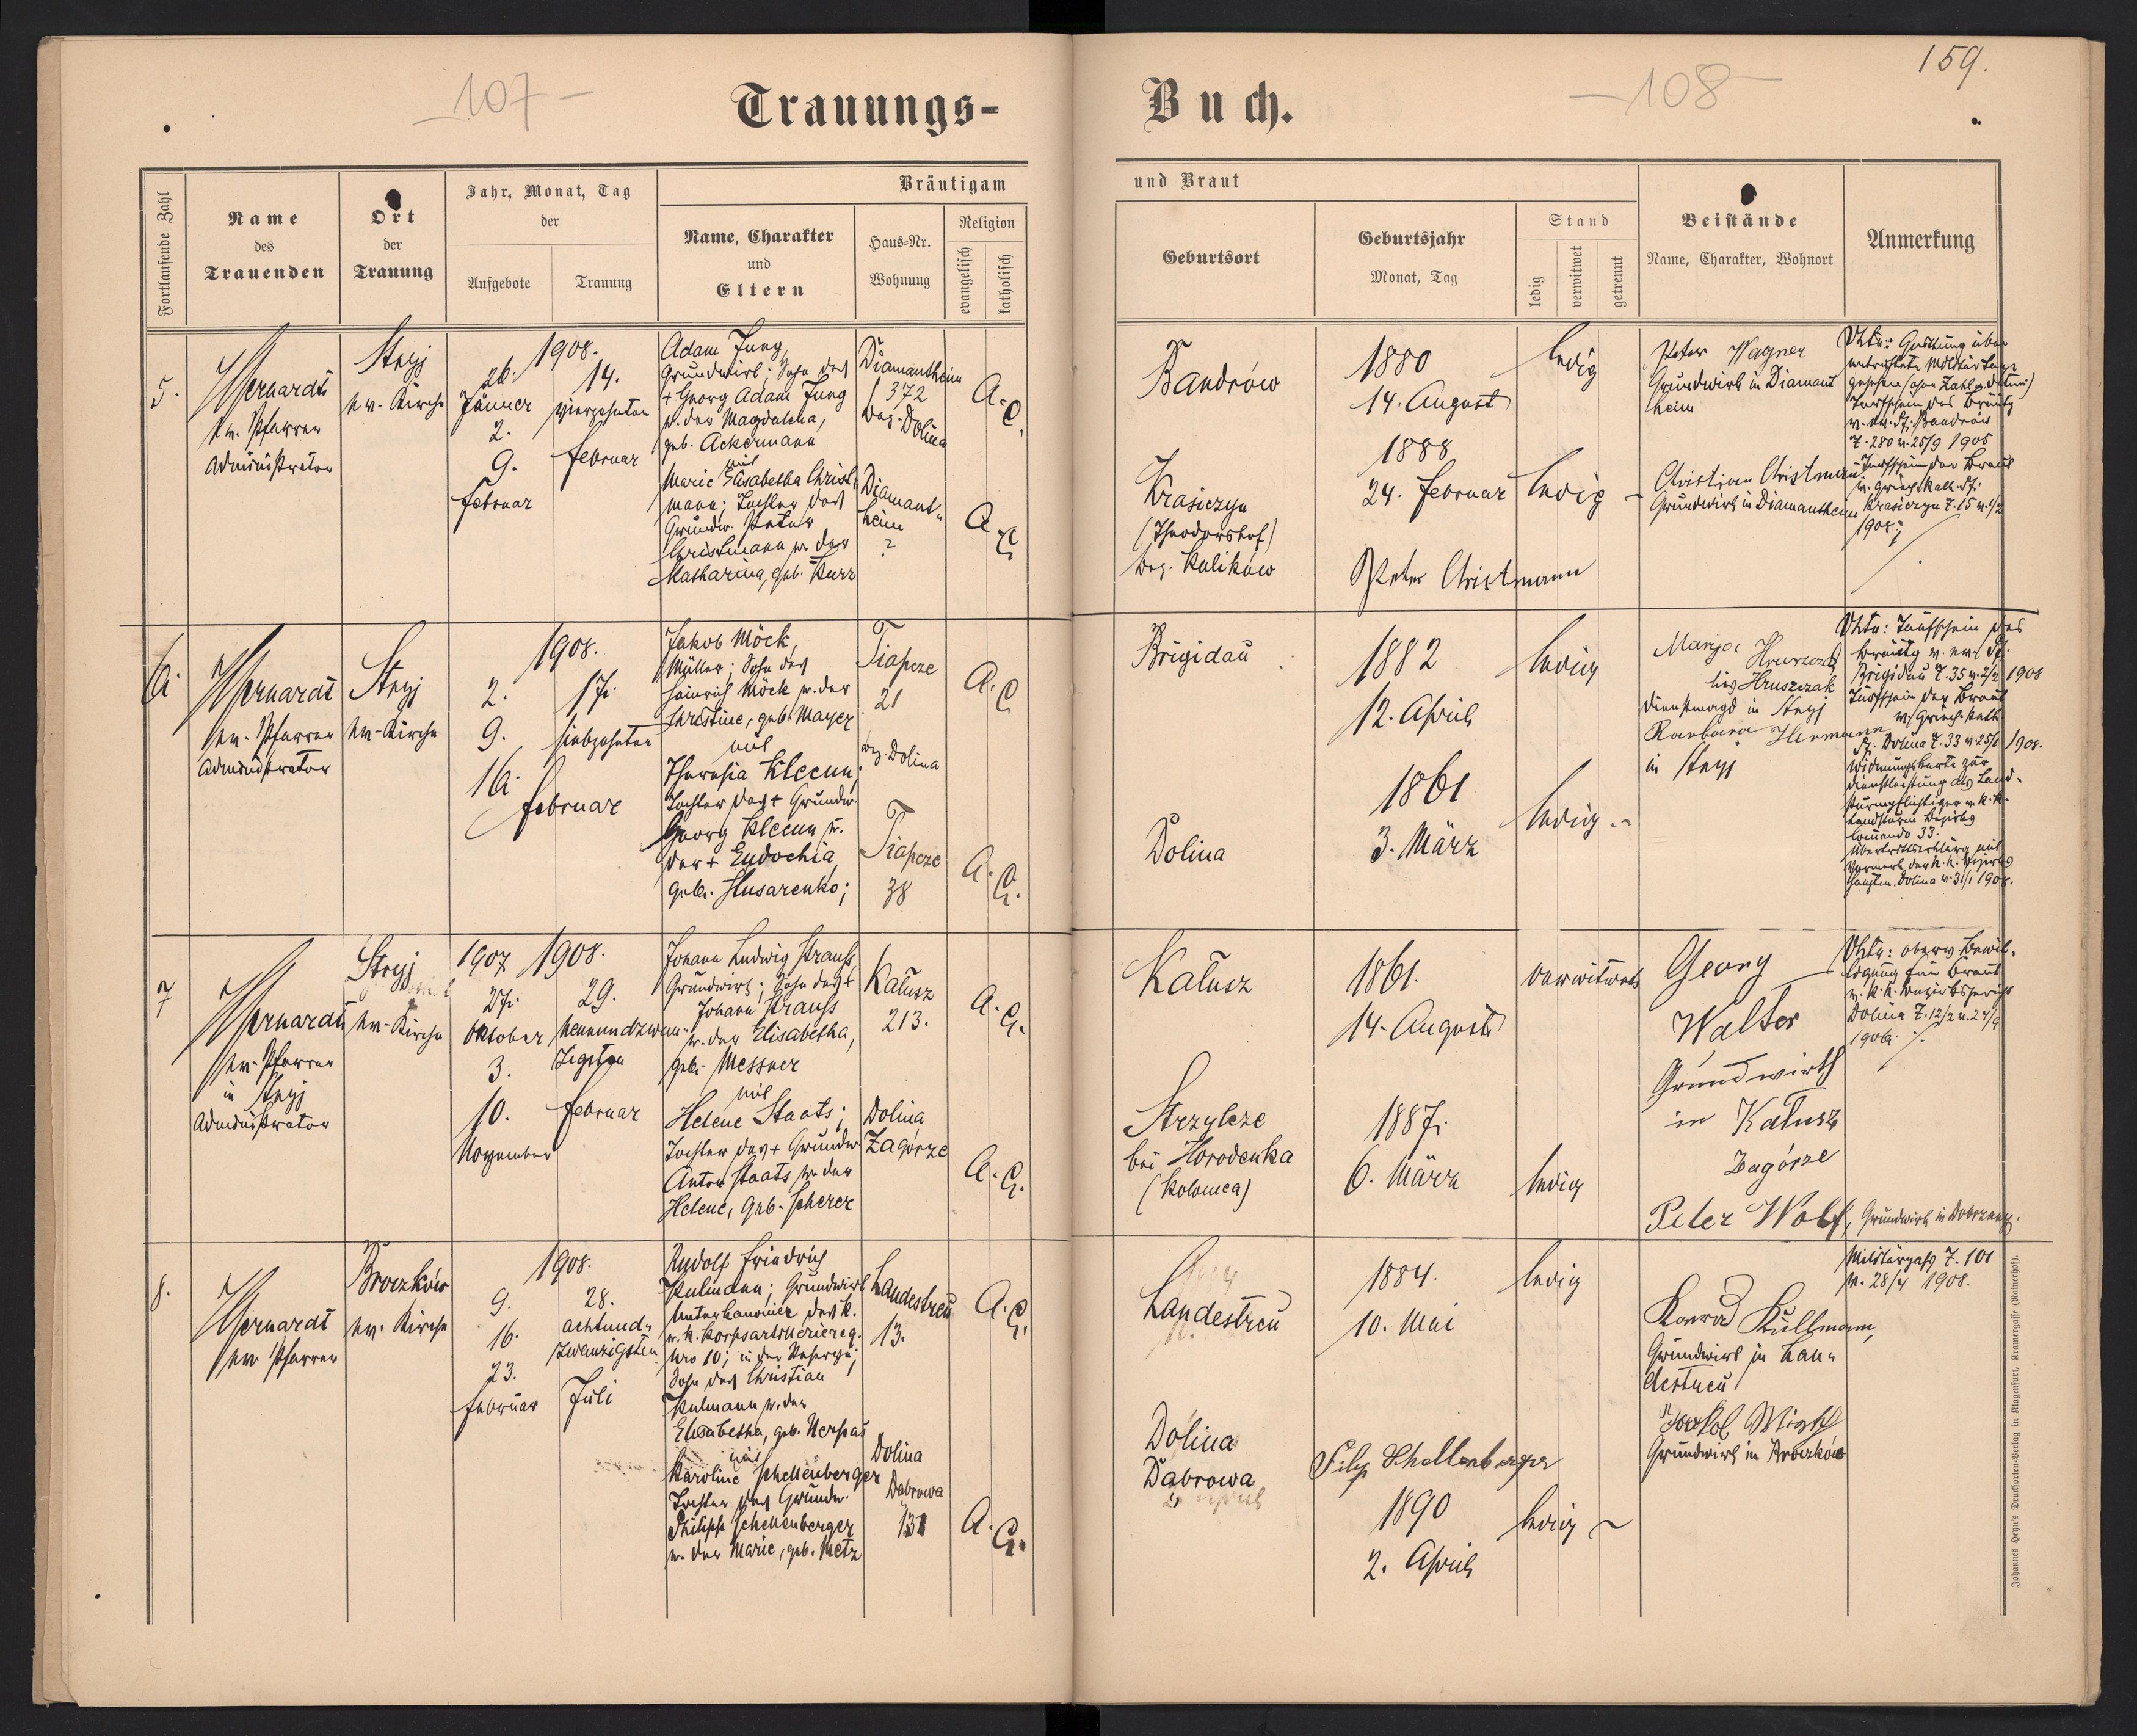 -107-
Trauungs-
Buch.
-108-
159.
Fortlaufende Zahl
Name
des
Trauenden
Ort
der
Trauung
Jahr, Monat, Tag
der
Aufgebote
Trauung
Bräutigam
Name, Charakter
und
Eltern
Haus-Nr.
Wohnung
Religion
evangelisch
katholisch
und Braut
Geburtsort
Geburtsjahr
Monat, Tag
Stand
ledig
verwitwet
getrennt
Beistände
Name, Charakter, Wohnort
Anmerkung
5.
ev. Pfarrer
Administrator
Stryj
ev. Kirche
1908.
26.
Jänner
2.
9.
Februar
14.
vierzehnten
Februar
Adam Jung,
Grundwirt; Sohn des
+ Georg Adam Jung
u. der Magdalena,
geb. Ackermann
mit
Marie Elisabetha Christ-
mann; Tochter des
Grundw. Peter
Christmann u. der
Katharina, geb. Kurz
Diamantheim
372
Bez. Dolina
Diamant-
heim
?
A. C.
A. C.
Bandrów
Krasiczyn
(Theodorshof)
bez. Kulików
1880
14. August
1888
24. Februar
Peter Christmann
ledig
ledig
Peter Wagner
Grundwirt in Diamant
heim
Christian Christmann
Grundwirt in Diamantheim
Taufschein des Bräutig
v. ev. Pf. Bandrów
Z. 280 v. 25/9 1905
Taufschein der Braut
v. griech. kath. Pf.
Krasiczyn Z. 15 v. 1/2
1908;
6.
ev. Pfarrer
Administrator
Stryj
ev. Kirche
1908.
2.
9.
16.
17.
siebzehnten
Februar
Jakob Möck,
Müller; Sohn des
Heinrich Möck u. der
Christine, geb. Mayer
mit
Theresia Kleeun,
Tochter des + Grundw.
Georg Kleeun u.
der + Eudochia,
geb. Husarenko;
Tiapcze
21
bez. Dolina
Tiapcze
38
A. C.
A. C.
Brigidau
Dolina
1882
12. April
1861
3. März
ledig
ledig
Marija
Hruszczak
Dienstmagd in Stryj
Barbara Hermann
in Stryj
Taufschein des
Bräutig v. ev. Pf.
Brigidau Z. 35 v. 2/2 1908
Taufschein der Braut
v. griech. kath.
Pf. Dolina Z. 33 v. 25/1 1908.
Widmungskarte zur
Dienstleistung als Land-
sturmpflichtiger v. k. k.
Landsturm Bezirks
Comando 33.
Dolina v. 31/1 1908.
7
ev. Pfarrer
in Stryj
Administrator
Stryj
ev. Kirche
1907
27.
Oktober
3.
10.
November
1908.
29.
neunundzwan-
zigsten
Februar
Johann Ludwig Strauss
Grundwirt; Sohn des +
Johann Strauss
u. der Elisabetha,
geb. Messner
mit
Helene Staats;
Tochter des + Grundw
Anton Staats u. der
Helene, geb. Scherer
Kałusz
213.
Dolina
Zagórze
A. C.
A. C.
Kałusz
Strzylcze
bei Horodenka
(Kolomea)
1861.
14. August
1887.
6. März
verwitwet
ledig
Georg
Walter
Grundwirth
in Kałusz
Zagórze
Peter Wolf, Grundwirt in
Dolina Z. 12/2 v. 24/9
1906.
8.
ev. Pfarrer
Broczków
ev. Kirche
1908.
9.
16.
23.
Februar
28.
achtund-
zwanzigsten
Juli
Rudolf Friedrich
Kulmann; Grundwirt
Unterkanonier des k.
u. k. Korpsartillerierg.
Nro 10; in der Reserve;
Sohn des Christian
Kulmann u. der
Elisabetha, geb. Nerpas
mit
Karoline Schellenberger
Tochter des Grundw.
Philipp Schellenberger
u. der Marie, geb. Metz
Landestreu
13.
Dolina
Dabrowa
131
A. C.
A. C.
Landestreu
Dolina
Dabrowa
1884.
10. Mai
Filip Schellenberger
1890
2. April
ledig
ledig
Konrad Kullmann,
Grundwirt in Lan-
destreu
Jakob
Grundwirt in Broczków
Militärpass Z. 101
v. 28/4 1908.
Johannes Heyn's Drucksorten-Verlag in Klagenfurt, Kramergasse (Rainerhof).